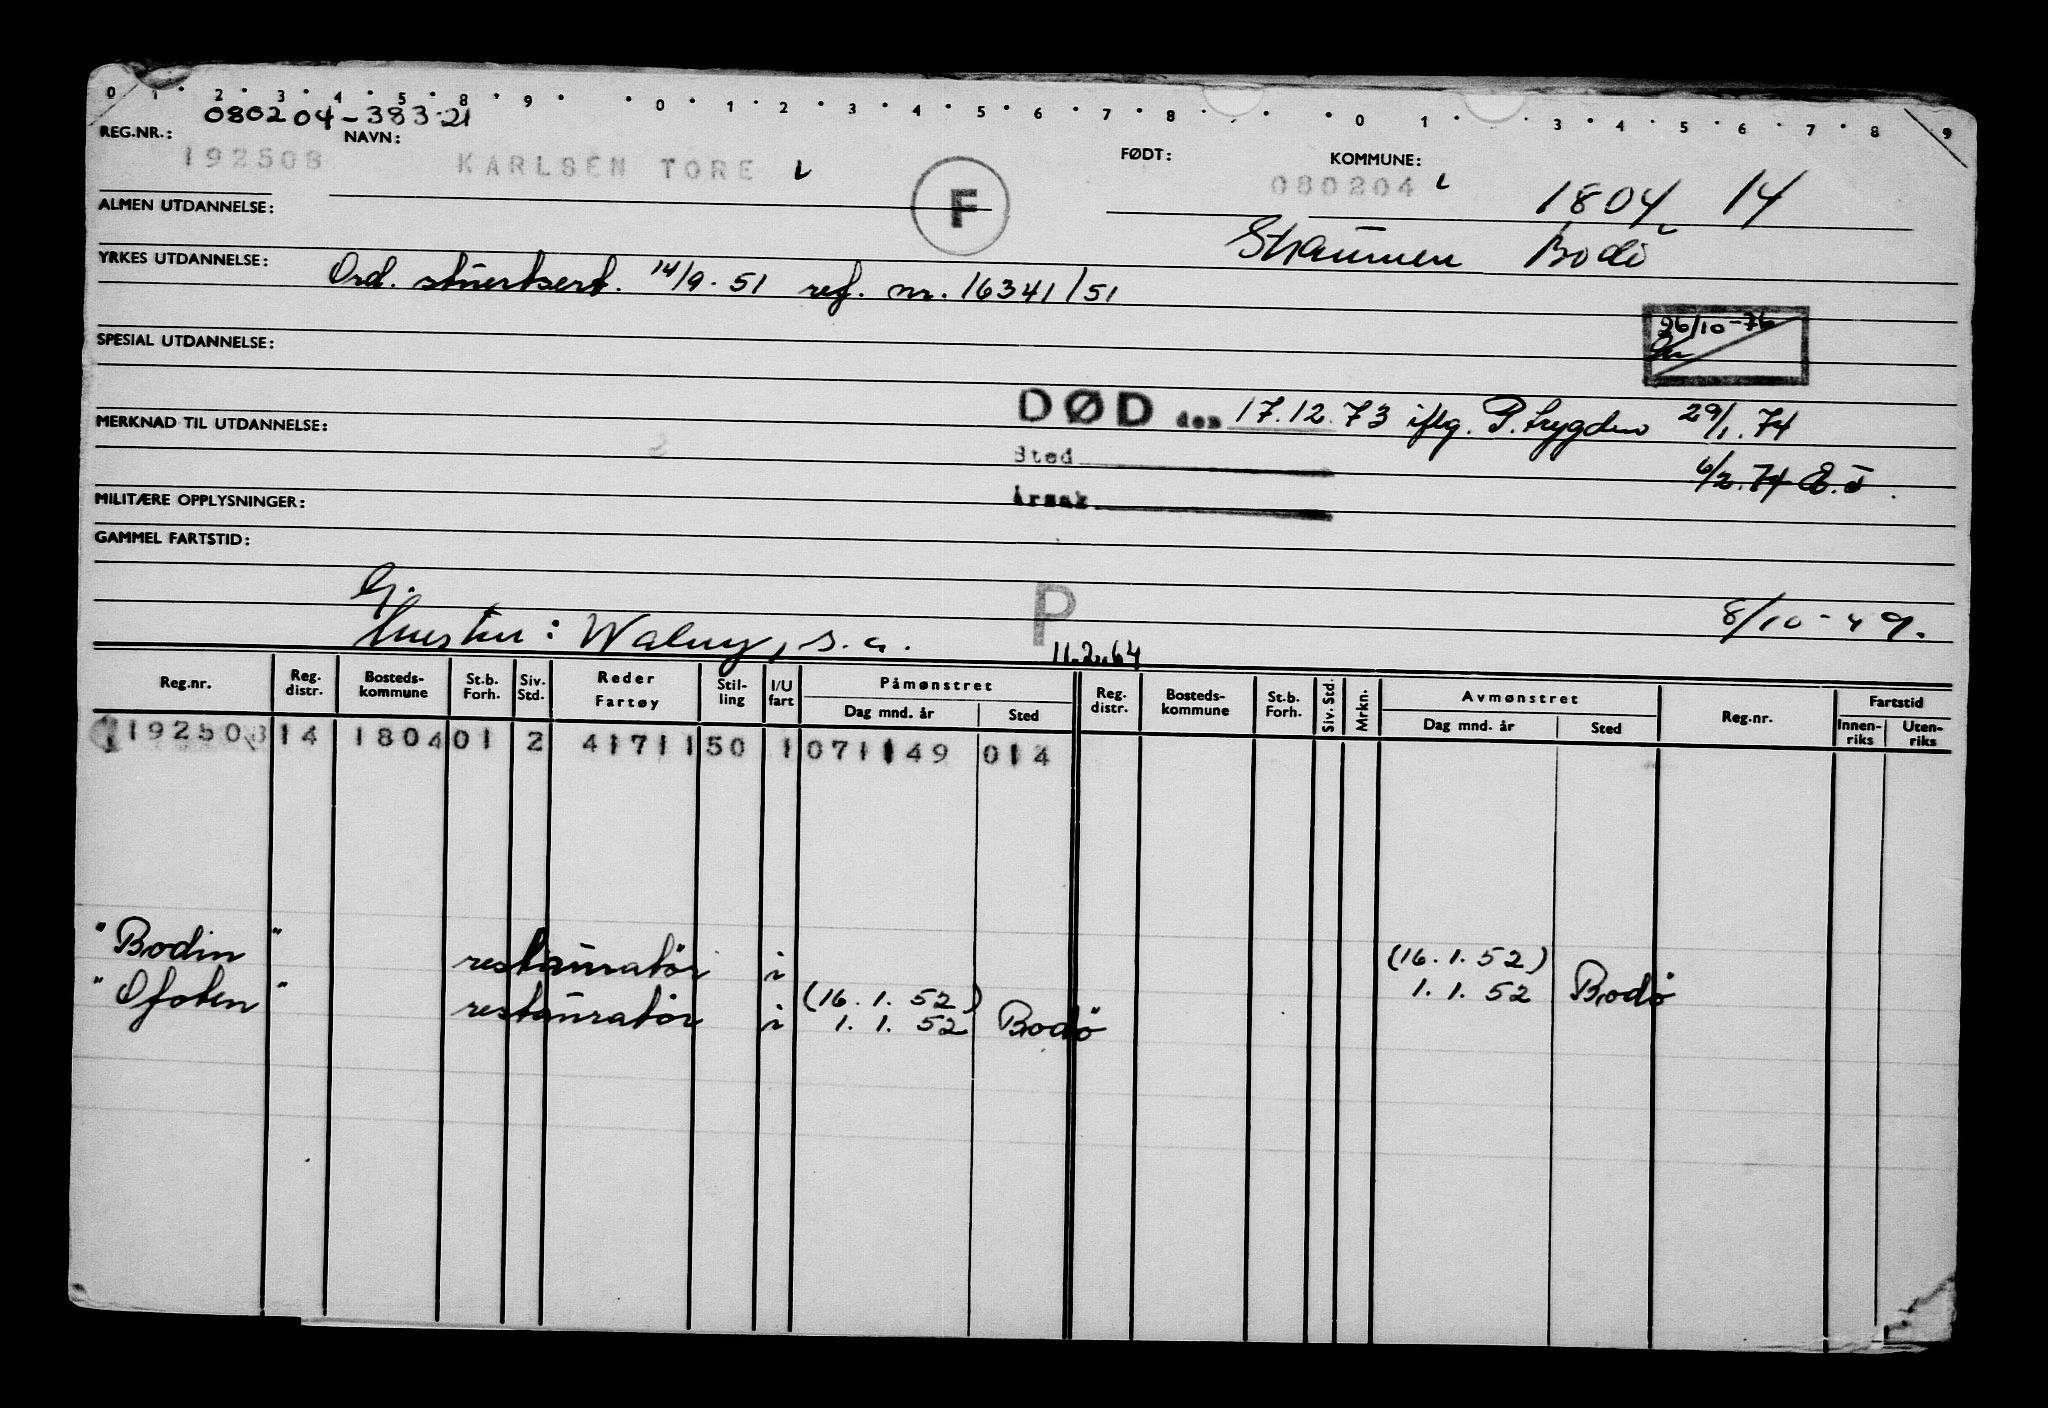 0 1 2 3 4 5 8 9 0 1 2 3 4 5 6 7 8 0 1 3 4 5 6 7 8 9
080204-383-21
REG.NR.: NAVN: FØDT: KOMMUNE:
192508 KARLSEN TORE F 080204 1804 14
ALMEN UTDANNELSE: Straumen Bodö
YRKES UTDANNELSE: Ord. stuertsert. 14/9-51 ref. nr. 16341/51
26/10-76
SPESIAL UTDANNELSE:
DØD den 17.12.73 iflg. P.trygden 29/1.74
MERKNAD TIL UTDANNELSE:
Sted
6/2.74
MILITÆRE OPPLYSNINGER: Årsak
GAMMEL FARTSTID:
G.
P 8/10-49.
s.a.
11.2.64
Reg.nr. Reg. distr. Bosteds-kommune St.b. Forh. Siv. Std. Reder Fartøy Stil-ling I/U fart Påmønstret Dag mnd. år Sted Reg. distr. Bosteds-kommune St.b. Forh. Siv. Std. Mrkn. Avmønstret Dag mnd. år Sted Reg.nr. Fartstid Innen-riks Uten-riks
192508 14 1804 01 2 41711 50 1 071149 014
"Bodin" restauratör i (16.1.52) 1.1.52 Bodö
"Ofoten" restauratör i (16.1.52) 1.1.52 Bodö